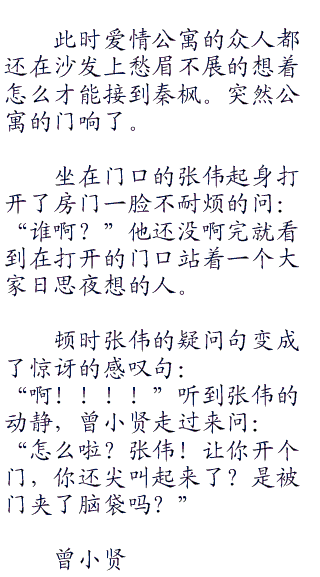 此时爱情公寓的众人都
还在沙发上愁眉不展的想着
怎么才能接到秦枫。突然公
寓的门响了。
坐在门口的张伟起身打
开了房门一脸不耐烦的问：
“谁啊？”他还没啊完就看
到在打开的门口站着一个大
家日思夜想的人。
顿时张伟的疑问句变成
了惊讶的感叹句：
“啊！！！！”听到张伟的
动静，曾小贤走过来问：
“怎么啦？张伟！让你开个
门，你还尖叫起来了？是被
门夹了脑袋吗？”
曾小贤